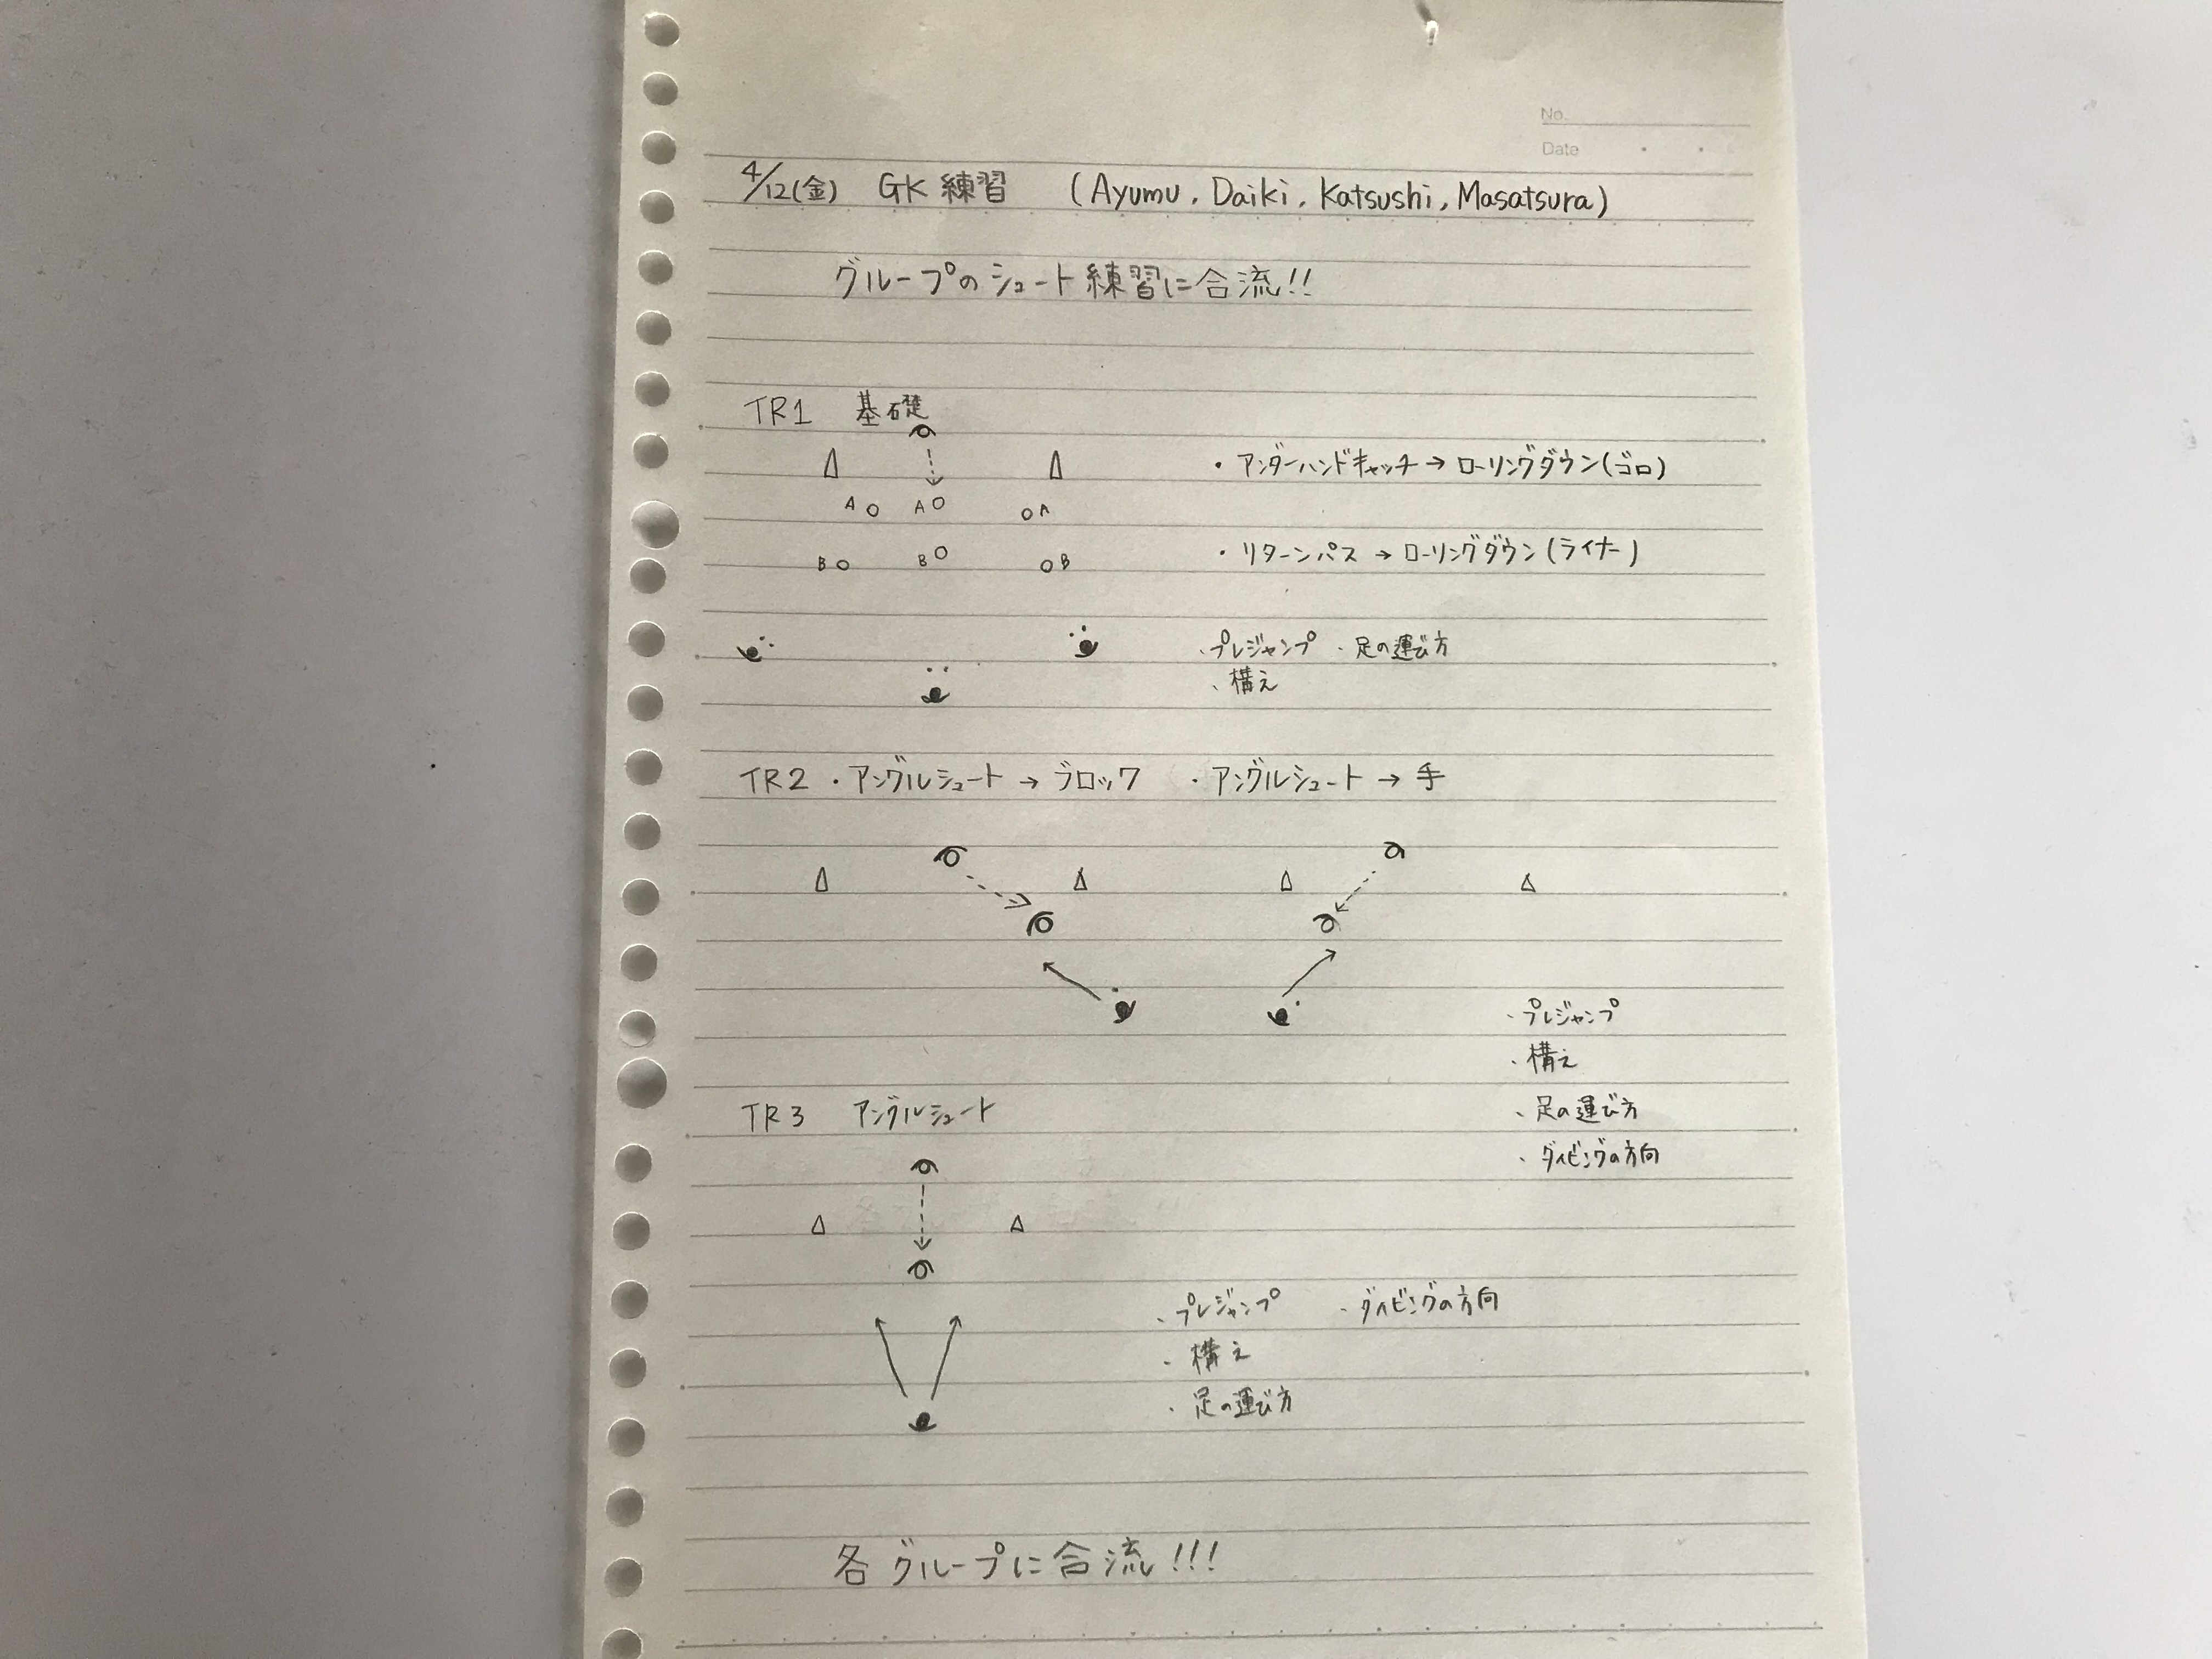 No.
Date
4/12(金) GK 練習 (Ayumu, Daiki, Katsushi, Masatsura)
グループのシュート練習に合流!!
TR1 基礎
・アンダーハンドキャッチ→ローリングダウン(ゴロ)
A A A
・リターンパス→ローリングダウン(ライナー)
B B B
・プレジャンプ ・足の運び方
・構え
TR2 ・アングルシュート→ブロック ・アングルシュート→手
・プレジャンプ
・構え
・足の運び方
・ダイビングの方向
TR3 アングルシュート
・プレジャンプ ・ダイビングの方向
・構え
・足の運び方
各グループに合流!!!